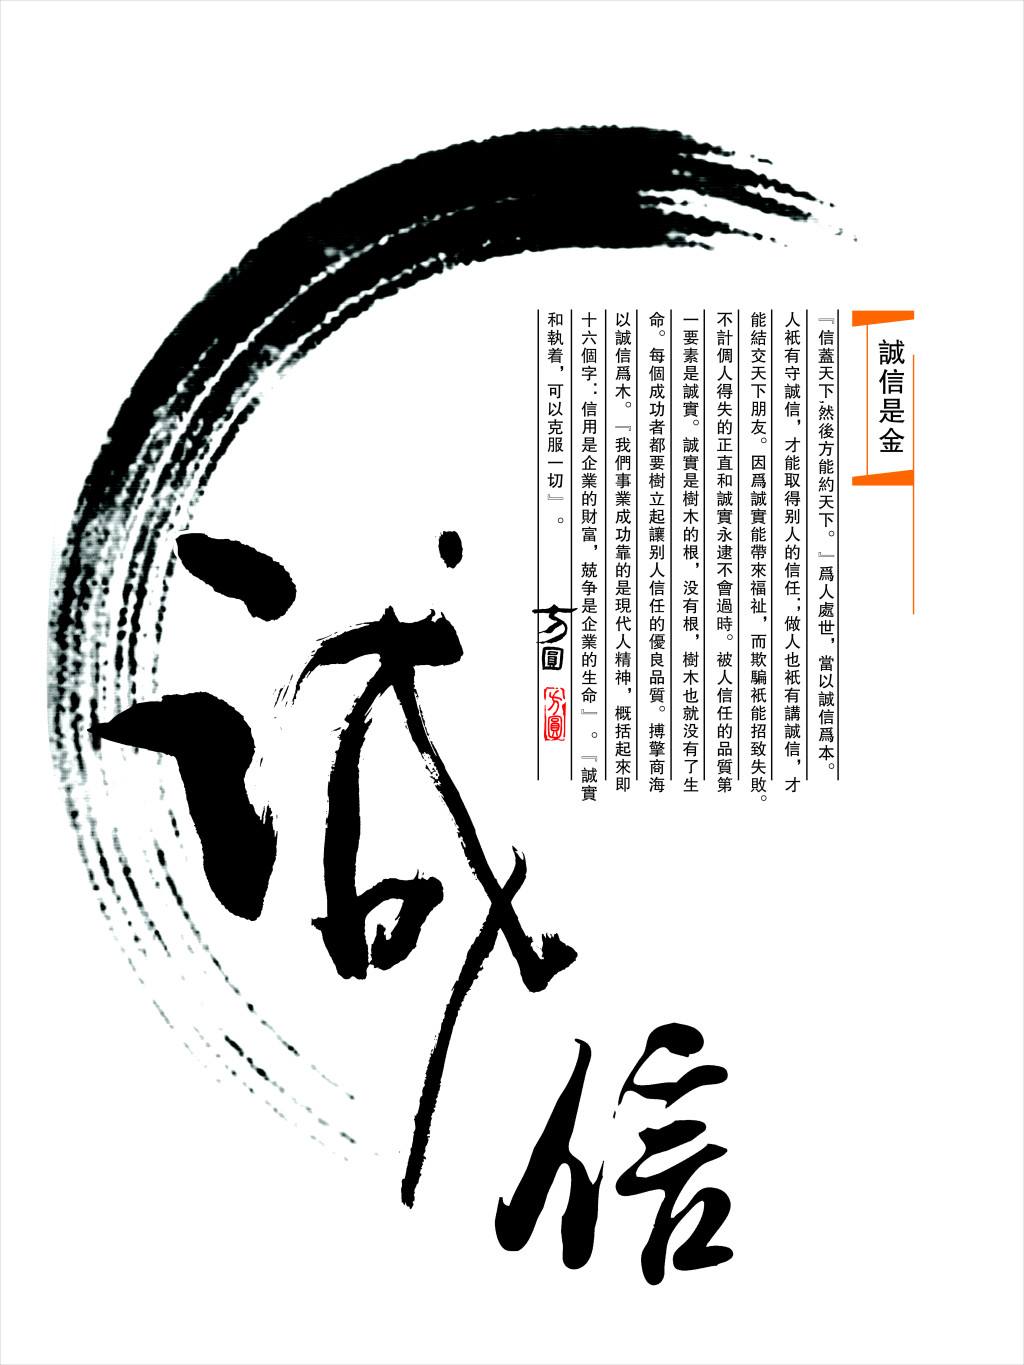 誠信是金
『信蓋天下,然後方能約天下。』爲人處世，當以誠信爲本。
人衹有守誠信，才能取得别人的信任；做人也衹有講誠信，才
能結交天下朋友。因爲誠實能帶來福祉，而欺騙衹能招致失敗。
不計個人得失的正直和誠實永逮不會過時。被人信任的品質第
一要素是誠實。誠實是樹木的根，没有根，樹木也就没有了生
命。每個成功者都要樹立起讓别人信任的優良品質。搏擎商海
以誠信爲木。『我們事業成功靠的是現代人精神，概括起來即
十六個字：信用是企業的財富，兢争是企業的生命』。『誠實
和執着，可以克服一切』。
方圓
方圓
誠
信